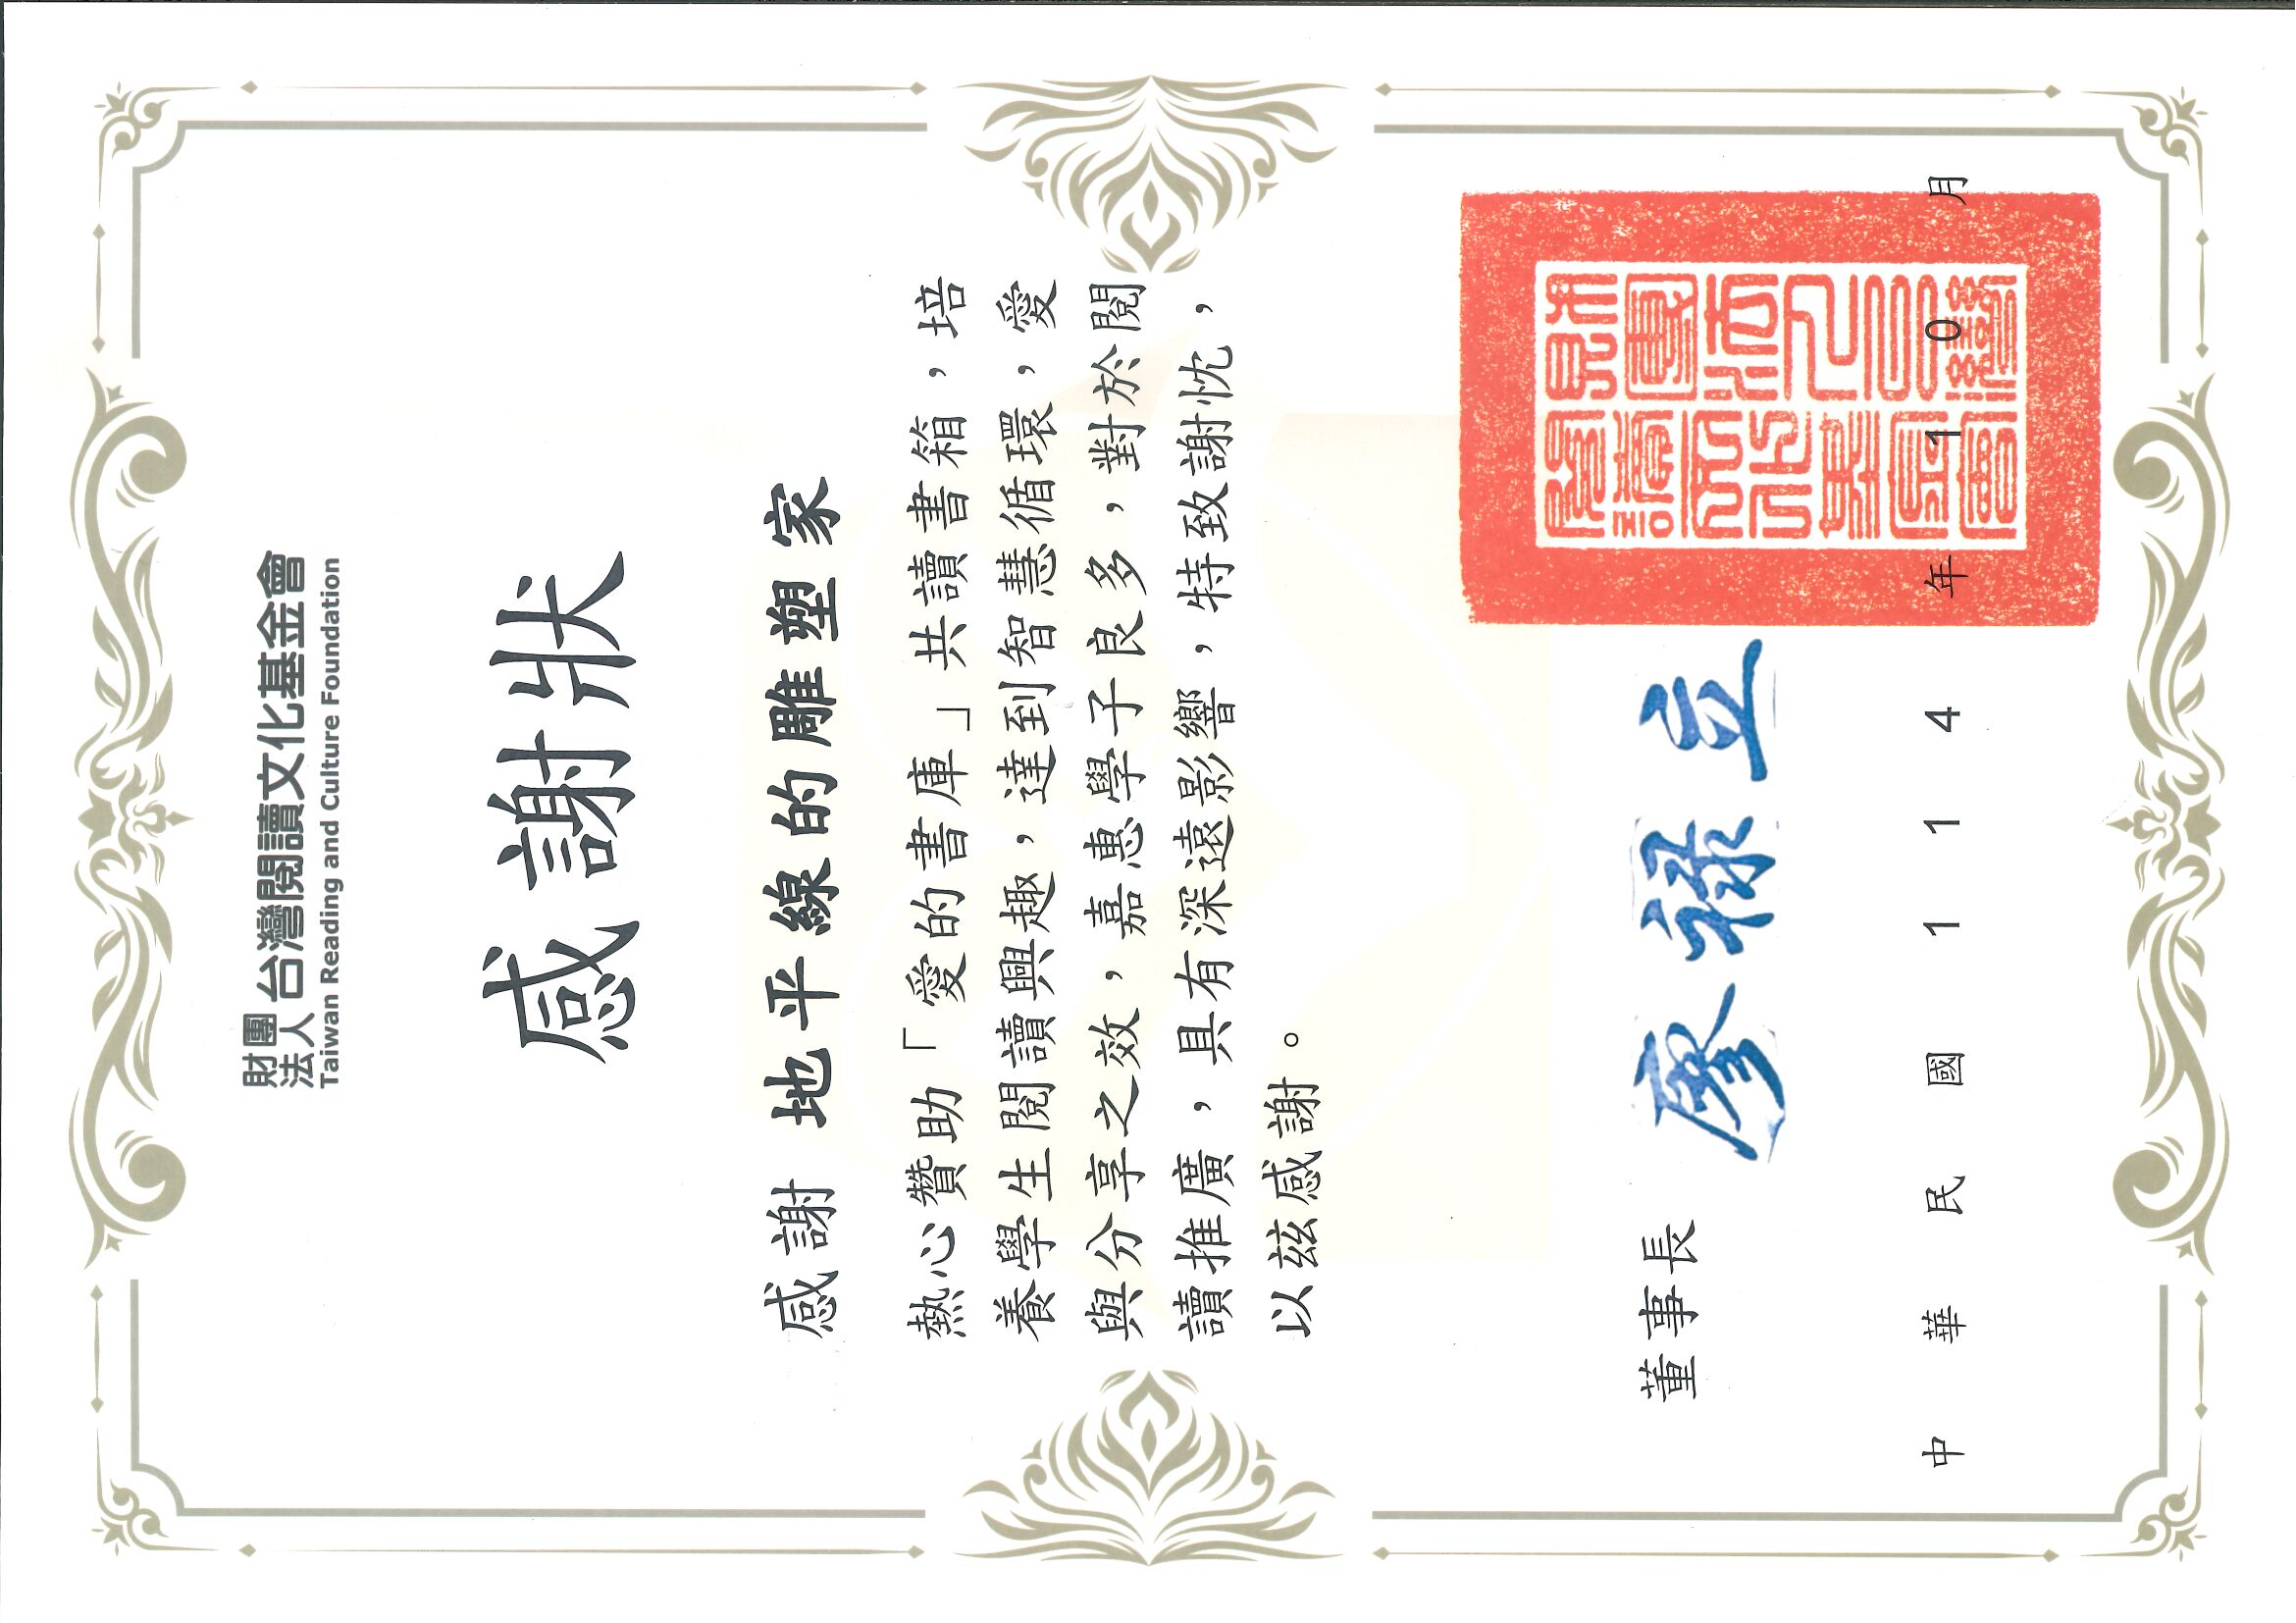 財團法人 台灣閱讀文化基金會
Taiwan Reading and Culture Foundation
感謝狀
感謝 地平線的雕塑家
熱心贊助「愛的書庫」共讀書箱，培
養學生閱讀興趣，達到智慧循環，愛
與分享之效，嘉惠學子良多，對於閱
讀推廣，具有深遠影響，特致謝忱，
以茲感謝。
董事長 廖祿立
中華民國114年10月